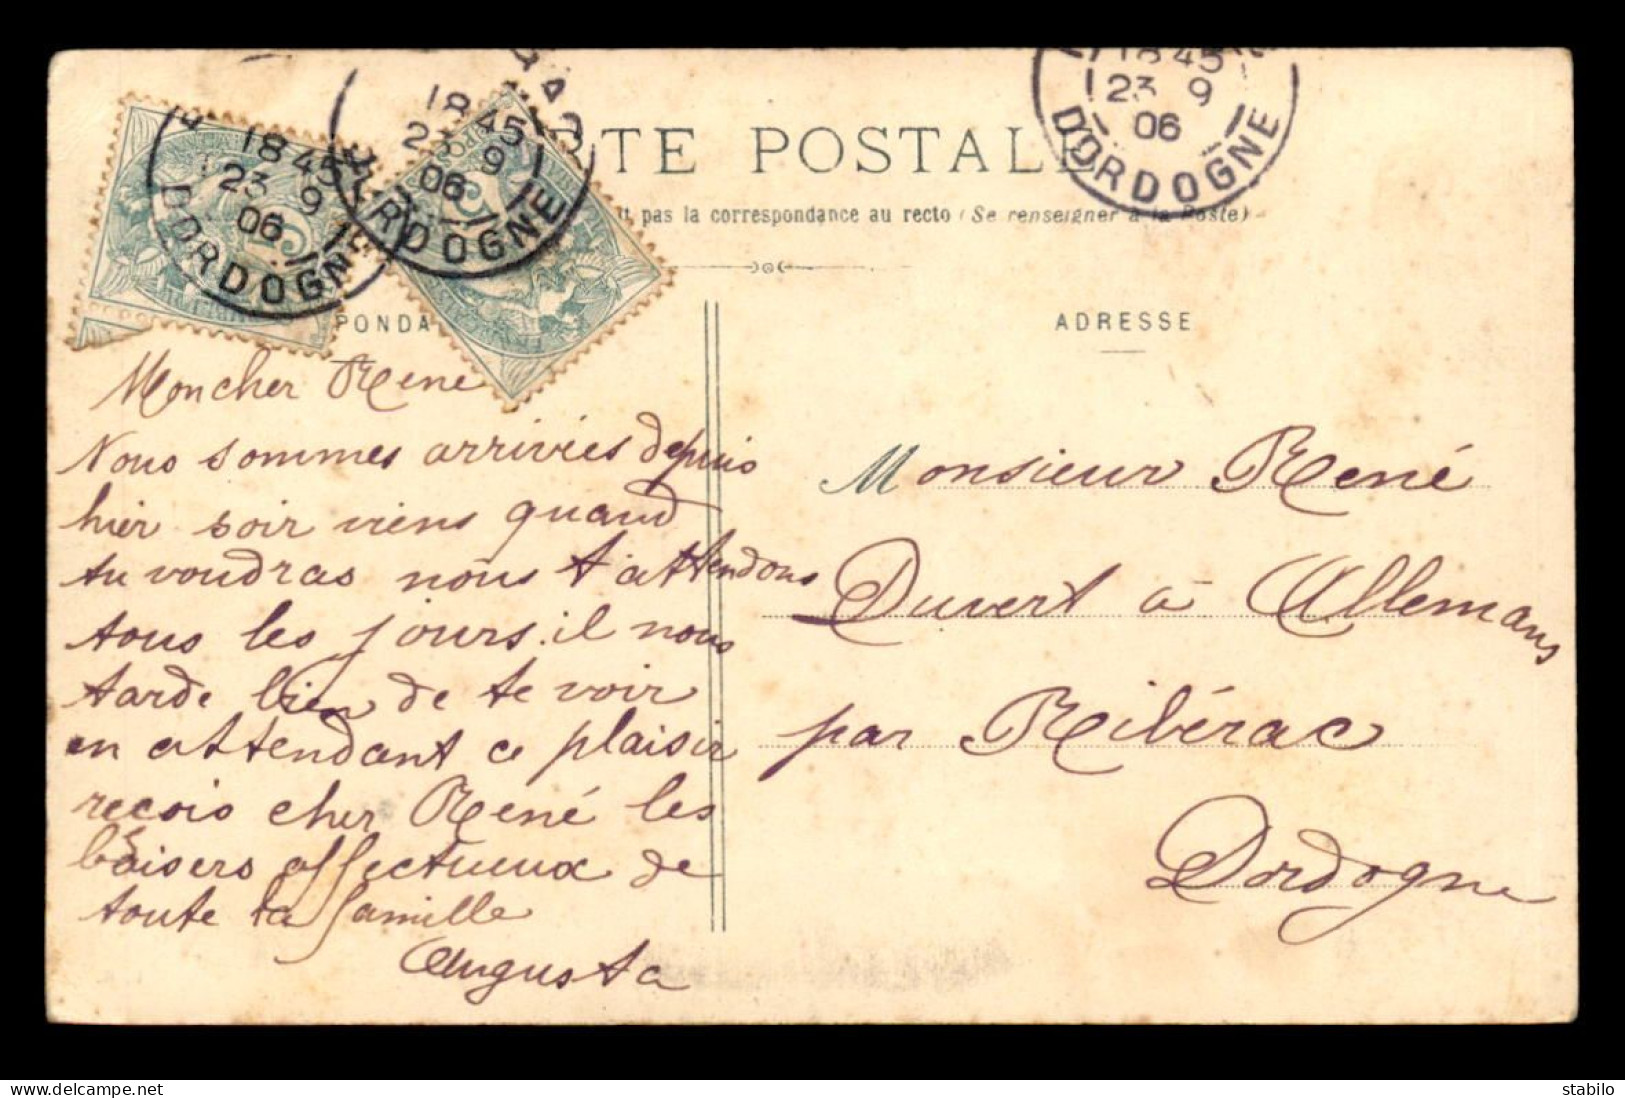 RTE POSTALE
it pas la correspondance au recto (Se renseigner à la Poste)
PONDA
ADRESSE
18 45
23 9
06
DORDOGNE
18 45
23 9
06
DORDOGNE
18 45
23 9
06
DORDOGNE
Mon cher Rene
Nous sommes arrivies depuis
hier soir viens quand
tu voudras nous t'attendons
tous les jours. il nous
tarde bien de te voir
en attendant ce plaisir
recois cher René les
baisers affectueux de
toute ta famille
Augusta
Monsieur René
Duvert à Allemans
par Ribérac
Dordogne
delcampe.net
stabilo